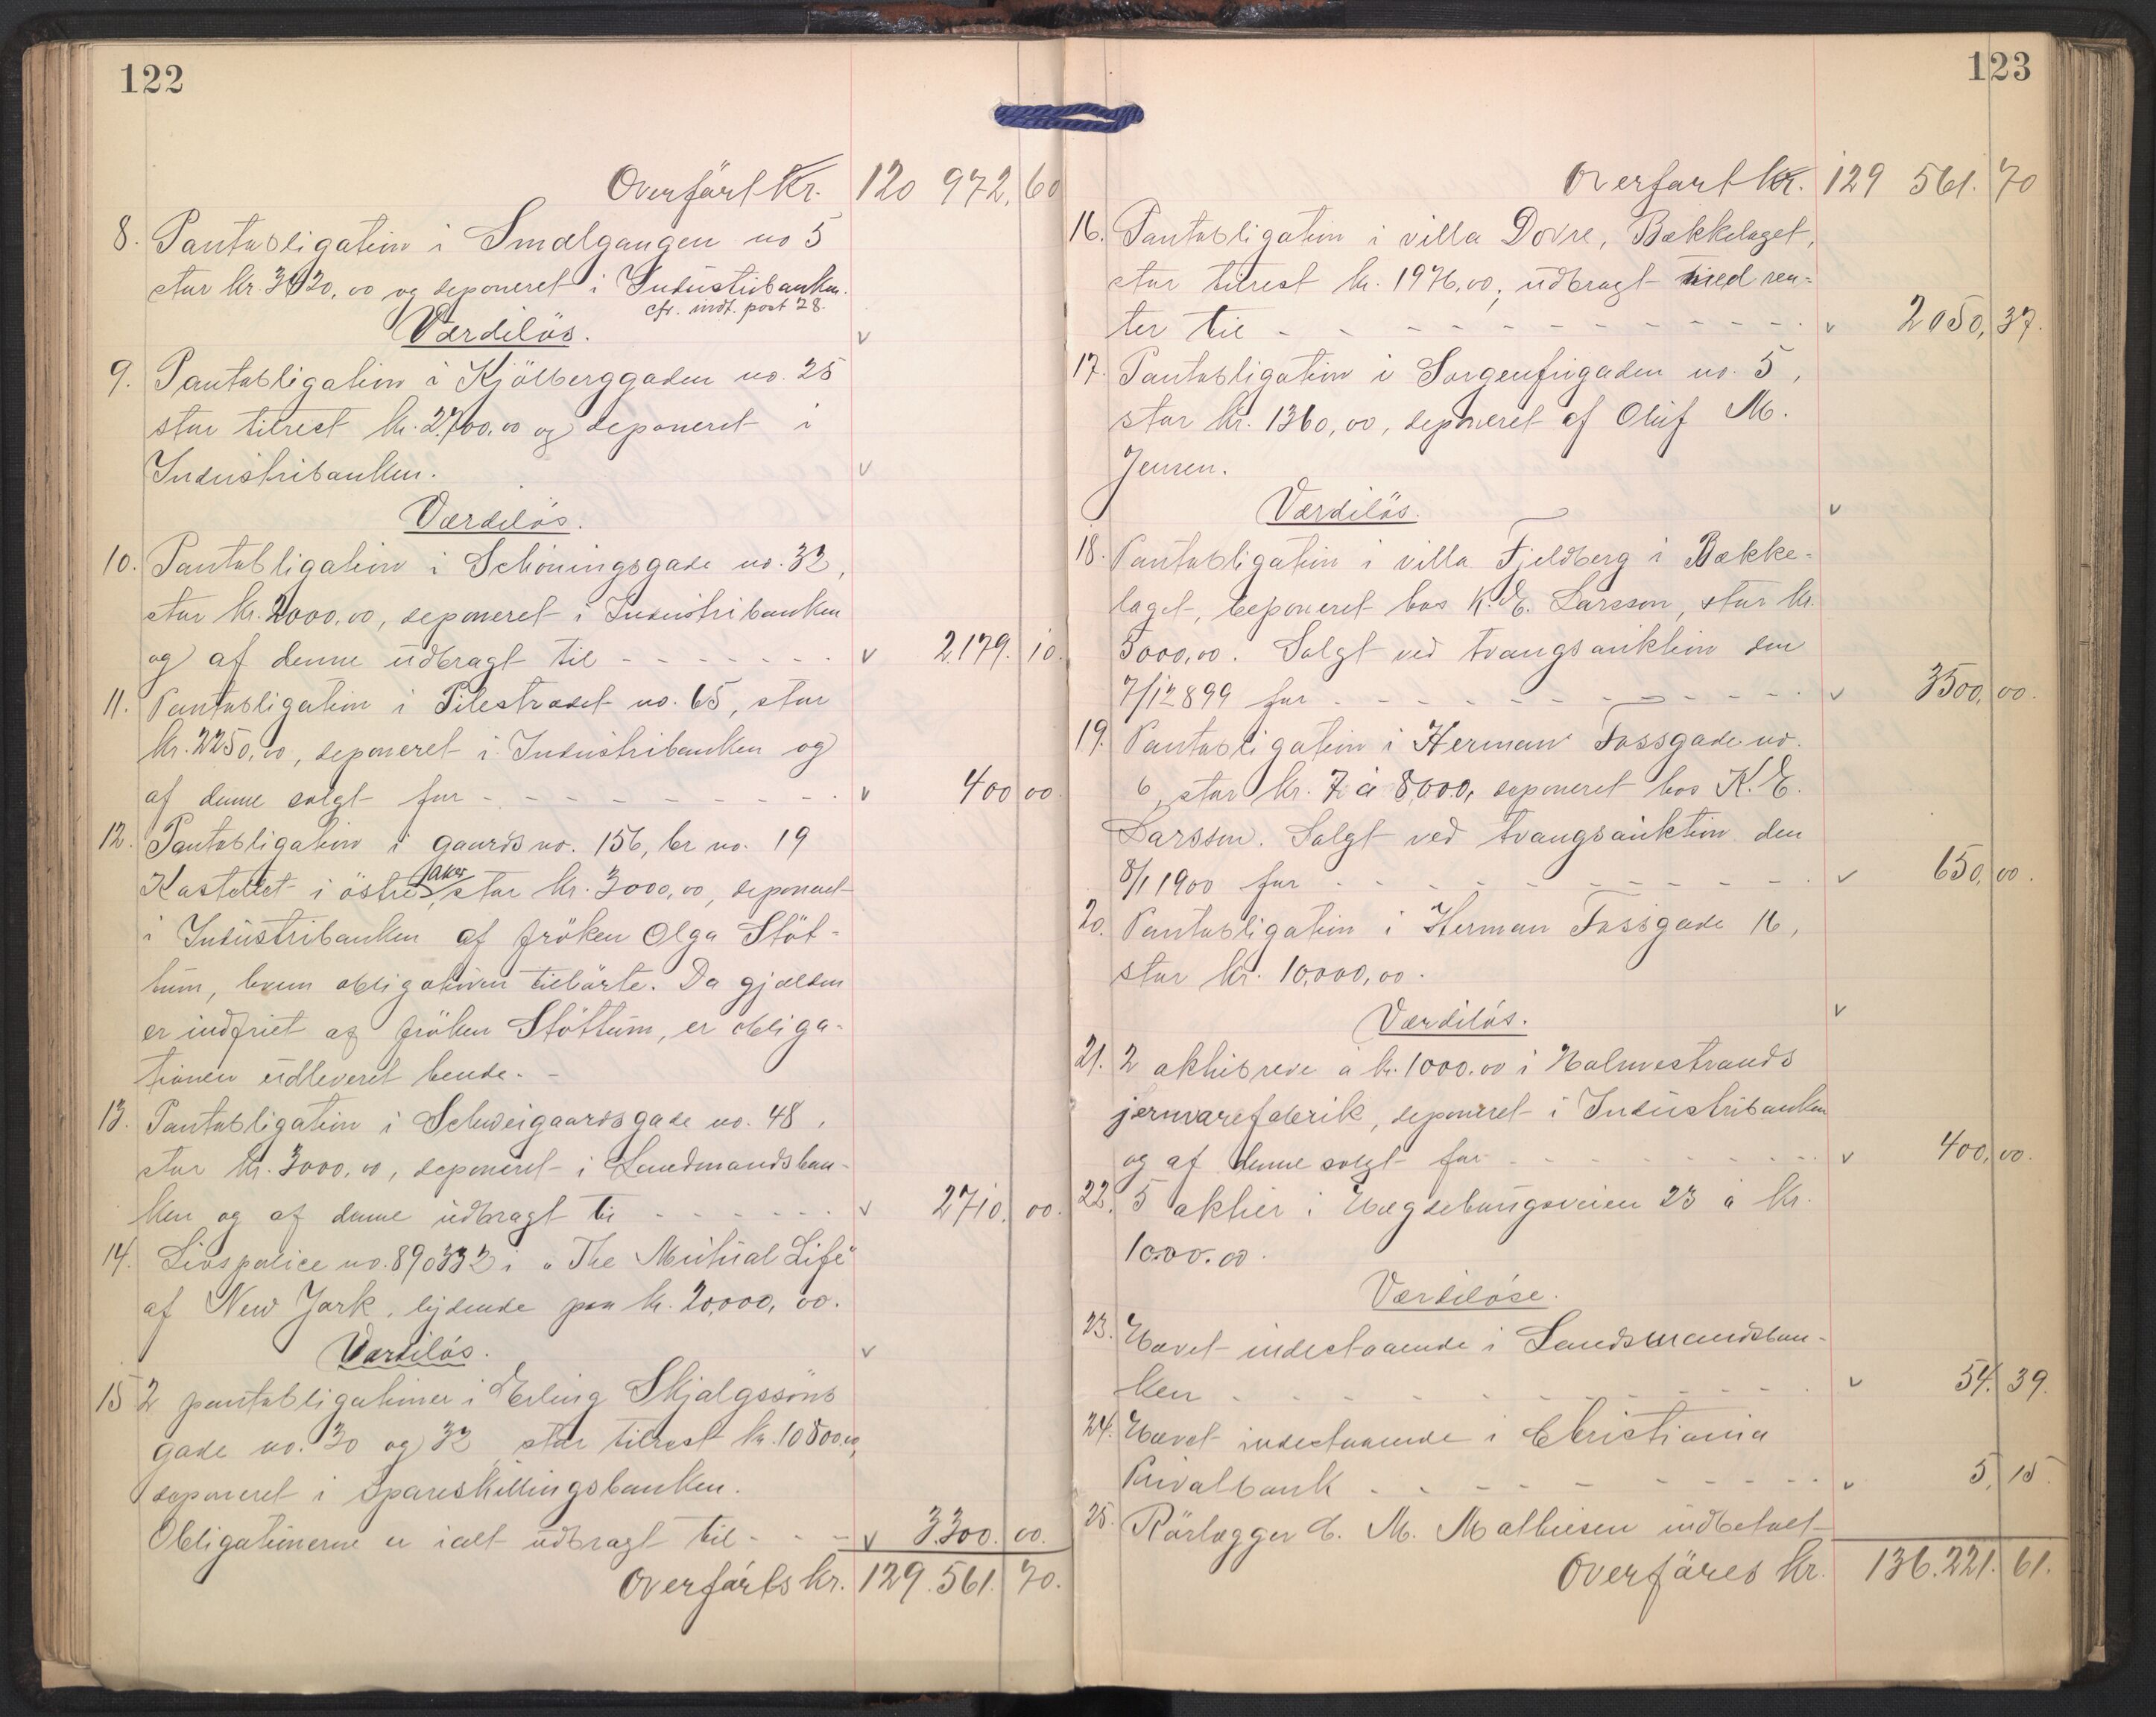 122
Overført Kr. 120 972,60
8. Pantobligation i Smalgangen no 5
stor kr. 3920,00 og deponeret i Industribanken.
cfr. indt. post 28.
Værdiløs. v
9. Pantobligation i Kjølberggaden no. 25
stor tilrest kr. 2700,00 og deponeret i
Industribanken. v
Værdiløs.
10. Pantobligation i Schøningsgade no. 32,
stor kr. 2000,00, deponeret i Industribanken
og af denne udbragt til - - - - - - - v 2179.10.
11. Pantobligation i Pilestrædet no. 65, stor
kr. 2250,00, deponeret i Industribanken og
af denne solgt for - - - - - - - - - - v 400 00.
12. Pantobligation i gaards no. 156, br no. 19
Kastellet i østre Aker, stor kr. 3000,00, deponeret
i Industribanken af frøken Olga Støt-
tum, hvem obligationen tilhørte. Da gjælden
er indfriet af frøken Støttum, er obliga-
tionen udleveret hende. -
13. Pantobligation i Schweigaardsgade no. 48,
stor kr. 3000,00, deponeret i Landmandsban-
ken og af denne udbragt til - - - - - - v 2710.00.
14. Livspolice no. 890332 i "The Mutual Life"
af New York, lydende paa kr. 20,000,00.
Værdiløs. v
15 2 pantobligationer i Erling Skjalgssøns
gade no. 30 og 32, stor tilrest kr. 10800,00,
deponeret i Spareskillingsbanken.
Obligationerne er ialt udbragt til - - - v 3.300.00.
Overførts kr. 129.561.70.
123
Overført kr. 129 561.70
16. Pantobligation i villa Dovre, Bækkelaget,
stor tilrest kr. 1976,00, udbragt med ren-
ter til - - - - - - - - - - - - - v 2050,37.
17. Pantobligation i Sorgenfrigaden no. 5,
stor kr. 1360,00, deponeret af Oluf M.
Jensen.
Værdiløs. v
18. Pantobligation i villa Fjeldberg i Bække-
laget, deponeret hos K. E. Larsson, stor kr.
5000,00. Solgt ved tvangsauktion den
7/12 899 for - - - - - - - - - - - - v 3500,00.
19. Pantobligation i Herman Fossgade no.
6, stor kr. 7 à 8,000, deponeret hos K. E.
Larsson. Solgt ved tvangsauktion den
8/1 1900 for - - - - - - - - - - - v 650,00.
20. Pantobligation i Herman Fossgade 16,
stor kr. 10,000,00.
Værdiløs. v
21. 2 aktiebreve à kr. 1000.00 i Holmestrands
jernvarefabrik, deponeret i Industribanken
og af denne solgt for - - - - - - - - - v 400,00.
22. 5 aktier i Hægdehaugsveien 23 à kr.
1000.00.
Værdiløse.
23. Havet indestaaende i Landsmandsban-
ken - - - - - - - - - - - - v 54.39.
24. Havet indestaaende i Christiania
Privatbank - - - - - - - - - - v 5,15.
25. Rørlægger C. M. Mathiesen indbetalt
Overføres kr. 136.221.61.